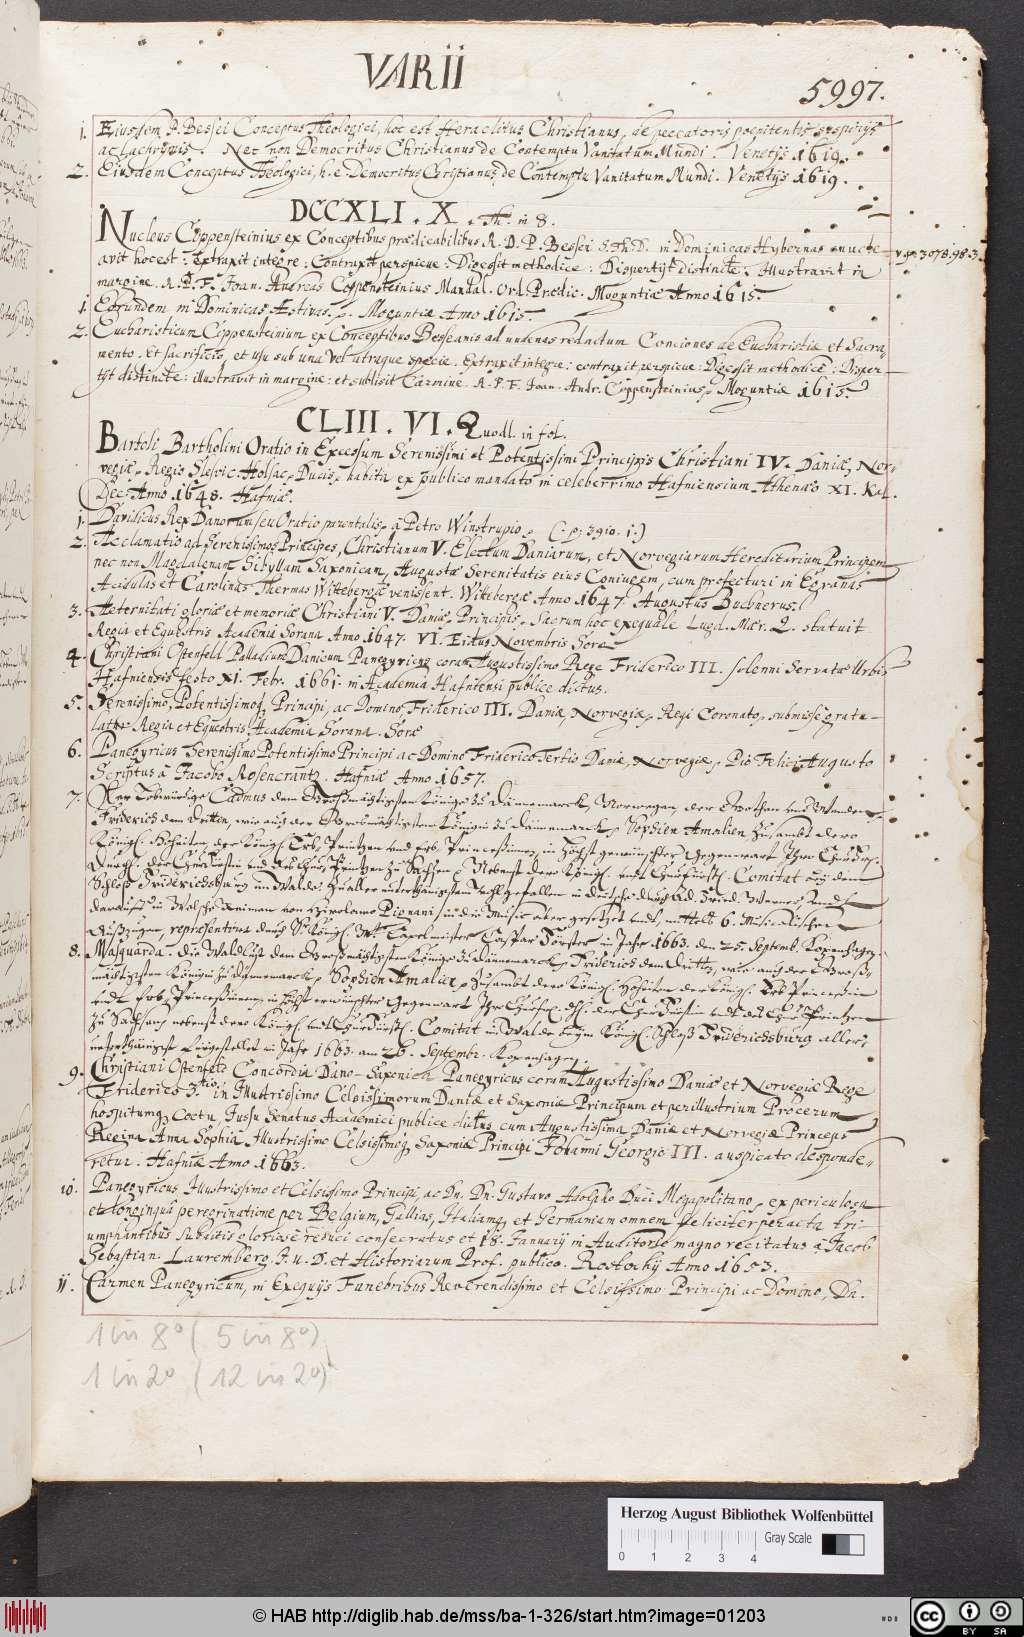 VARII
5997.
1. Eiusdem P. Bessei Conceptus Theologici, hoc est Heraclitus Christianus, de peccatoris poenitentis suspirijs
ac lachrymis. Nec non Democritus Christianus de Contemptu Vanitatum Mundi. Venetijs 1619.
2. Eiusdem Conceptus Theologici, h. e. Democritus Christianus, de Contemptu Vanitatum Mundi. Venetijs 1619.
DCCXLI. X. Th. in 8.
Nucleus Coppensteinius ex Conceptibus praedicabilibus R. D. P. Bessei S. Th. D. in Dominicas Hybernas enucle-
avit hoc est: extraxit integre: Contraxit perspicue: Digessit methodice: Dispertijt distincte. Illustravit in
margine. R. P. F. Joan. Andreas Coppensteinius Mandal. Ord. Praedic. Moguntiae Anno 1615.
v. p. 3078. 98. 3.
1. Eorundem in Dominicas Aestivas. Moguntiae Anno 1615.
2. Eucharisticum Coppensteinium ex Conceptibus Besseanis ad undenas redactum Conciones de Eucharistiae et Sacra-
mento, et sacrificio, et usu sub una vel utraque specie. Extraxit integre: contraxit perspicue: Digessit methodice: Disper-
tijt distincte: illustravit in margine: et sublisit Carmine. R. P. F. Joan. Andr. Coppensteinius. Moguntiae 1615.
CLIII. VI. Quodl. in fol.
Bartoli Bartholini Oratio in Excessum Serenissimi et Potentissimi Principis Christiani IV. Daniae, Nor-
vegiae, Regis Slesvic. Holsac. Ducis, habita ex publico mandato in celeberrimo Hafniensium Athenaeo XI. Kal.
Dec. Anno 1648. Hafniae.
1. Davidicus Rex Danorum seu Oratio parentalis, a Petro Winstrupio, (. p. 3910. 1.)
2. Acclamatio ad Serenissimos Principes, Christianum V. Electum Daniarum, et Norvegiarum Hereditarium Principem
nec non Magdalenam Sibyllam Saxonicam, Augustae Serenitatis eius Coniugem, cum profecturi in Egranas
Acidulas et Carolinas Thermas Witebergae venissent. Witebergae Anno 1647. Augustus Buchnerus.
3. Aeternitati gloriae et memoriae Christiani V. Daniae Principis, Sacrum hoc exequiale Lugd. Maer. Q. statuit
Regia et Equestris Academia Sorana Anno 1647. VI. Eidus Novembris Sorae
4. Christiani Ostenfeld Palladium Danicum Panegyricus coram Augustissimo Rege Friderico III. solenni Servatae Urbis
Hafniensis festo XI. Febr. 1661. in Academia Hafniensi publice dictus.
5. Serenissimo, Potentissimoq. Principi, ac Domino, Friderico III. Daniae, Norvegiae, Regi Coronato, submisse gratu-
latur Regia et Equestris Academia Sorana. Sorae
6. Panegyricus Serenissimo Potentissimo Principi ac Domino Friderico Tertio Daniae, Norvegiae, Pio Felici Augusto
Scriptus a Jacobo Rosencrantz. Hafniae Anno 1657.
7. Der Lobwürdige Cadmus dem Großmächtigsten Könige zu Dännemarck, Norwegen, der Gothen und Wenden,
Friderich dem Dritten, wie auch der Großmächtigsten Königin zu Dännemarck, Sophien Amalien zusambt dero
Königl. Hoheiten, der Königl. Erb Printzen und Erb Princessinnen, in höchst gewünschter Gegenwart Ihro ChurFr.
Durchl. der ChurFürstin und des Chur Printzen zu Sachsen, Nebenst dero Königl. und Churfürstl. Comitat auf dem
Schloß Friderichsburg im Walde zu aller unterthänigstem wohlgefallen in deutsche durch
darauf in Welsche Reimen von Hieronimo Pignani, in die Music aber gesetzet und, mittelst 6. Musicalischen
Aufzügen, repraesentiret durch Sr. Königl. Mtt. Capelmeister Caspar Förster in Jahr 1663. den 25. Septemb. Kopenhagen.
8. Masquarda. die Waldlust dem Großmächtigsten Könige zu Dännemarck, Friderich dem Dritten, wie auch der Groß-
mächtigsten Königin zu Dännemarck, Sophien Amalien, zusambt dero Königl. Hoheiten der Königl. Erb Princessin
und Erb Princessinnen, in höchst erwünschter Gegenwart Ihr Churfr. dhl. der ChurFürstin und des Chur Printzen
zu Sachsen nebenst dero Königl. und ChurFürstl. Comitat im Walde beym Königl. Schloß Friderichsburg aller-
unterthänigst fürgestellet in Jahr 1663. am 26. Septembr. Kopenhagen.
9. Christiani Ostenfeld Concordia Dano-Saxonica Panegyricus coram Augustissimo Daniae et Norvegiae Rege
Friderico 3.tio in Illustrissimo Celsissimorum Daniae et Saxoniae Principum et perillustrium Procerum
hospitumq. Coetu, Jussu Senatus Academici publice dictus cum Augustissima Daniae et Norvegiae Princeps
Regina Anna Sophia Illustrissimo Celsissimoq. Saxoniae Principi Johanni Georgio III. auspicato desponde-
retur. Hafniae Anno 1663.
10. Panegyricus, Illustrissimo et Celsissimo Principi, ac Dn. Dn. Gustavo Adolpho Duci Megapolitano, ex periculosa
et longinqua peregrinatione per Belgium, Gallias, Italiamq. et Germaniam omnem feliciter peracta tri-
umphantibus subditis gloriose reduci consecratus et 18. Januarij in Auditorio magno recitatus a Jacob
Sebastian. Lauremberg. J. U. D. et Historiarum Prof. publico. Rostochij Anno 1653.
11. Carmen Panegyricum, in Exequijs Funebribus Reverendissimo et Celsissimo Principi ac Domino, Dn.
1 in 8° (5 in 8°)
1 in 2° (12 in 2°)
Herzog August Bibliothek Wolfenbüttel
Gray Scale
0 1 2 3 4
© HAB http://diglib.hab.de/mss/ba-1-326/start.htm?image=01203
cc BY SA